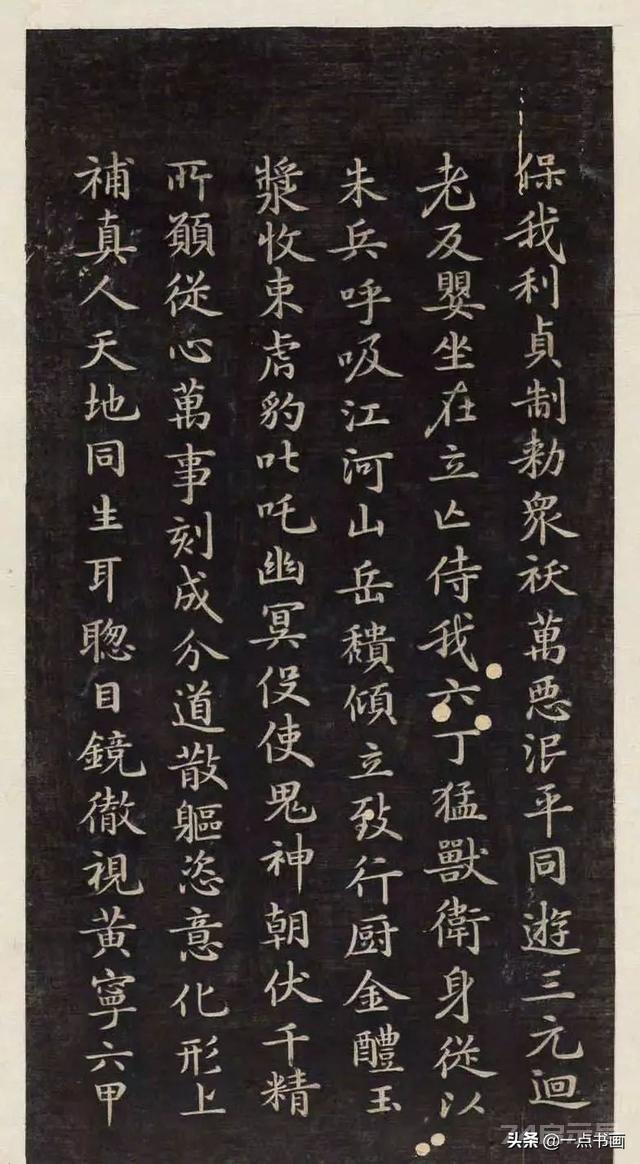 保我利貞制勑眾袄萬惡泯平同遊三元迴
老反嬰坐在立亾侍我六丁猛獸衛身從以
朱兵呼吸江河山岳穨傾立致行厨金醴玉
漿收束虎豹叱吒幽冥役使鬼神朝伏千精
所願從心萬事刻成分道散軀恣意化形上
補真人天地同生耳聦目鏡徹視黃寧六甲
头条 @一点书画